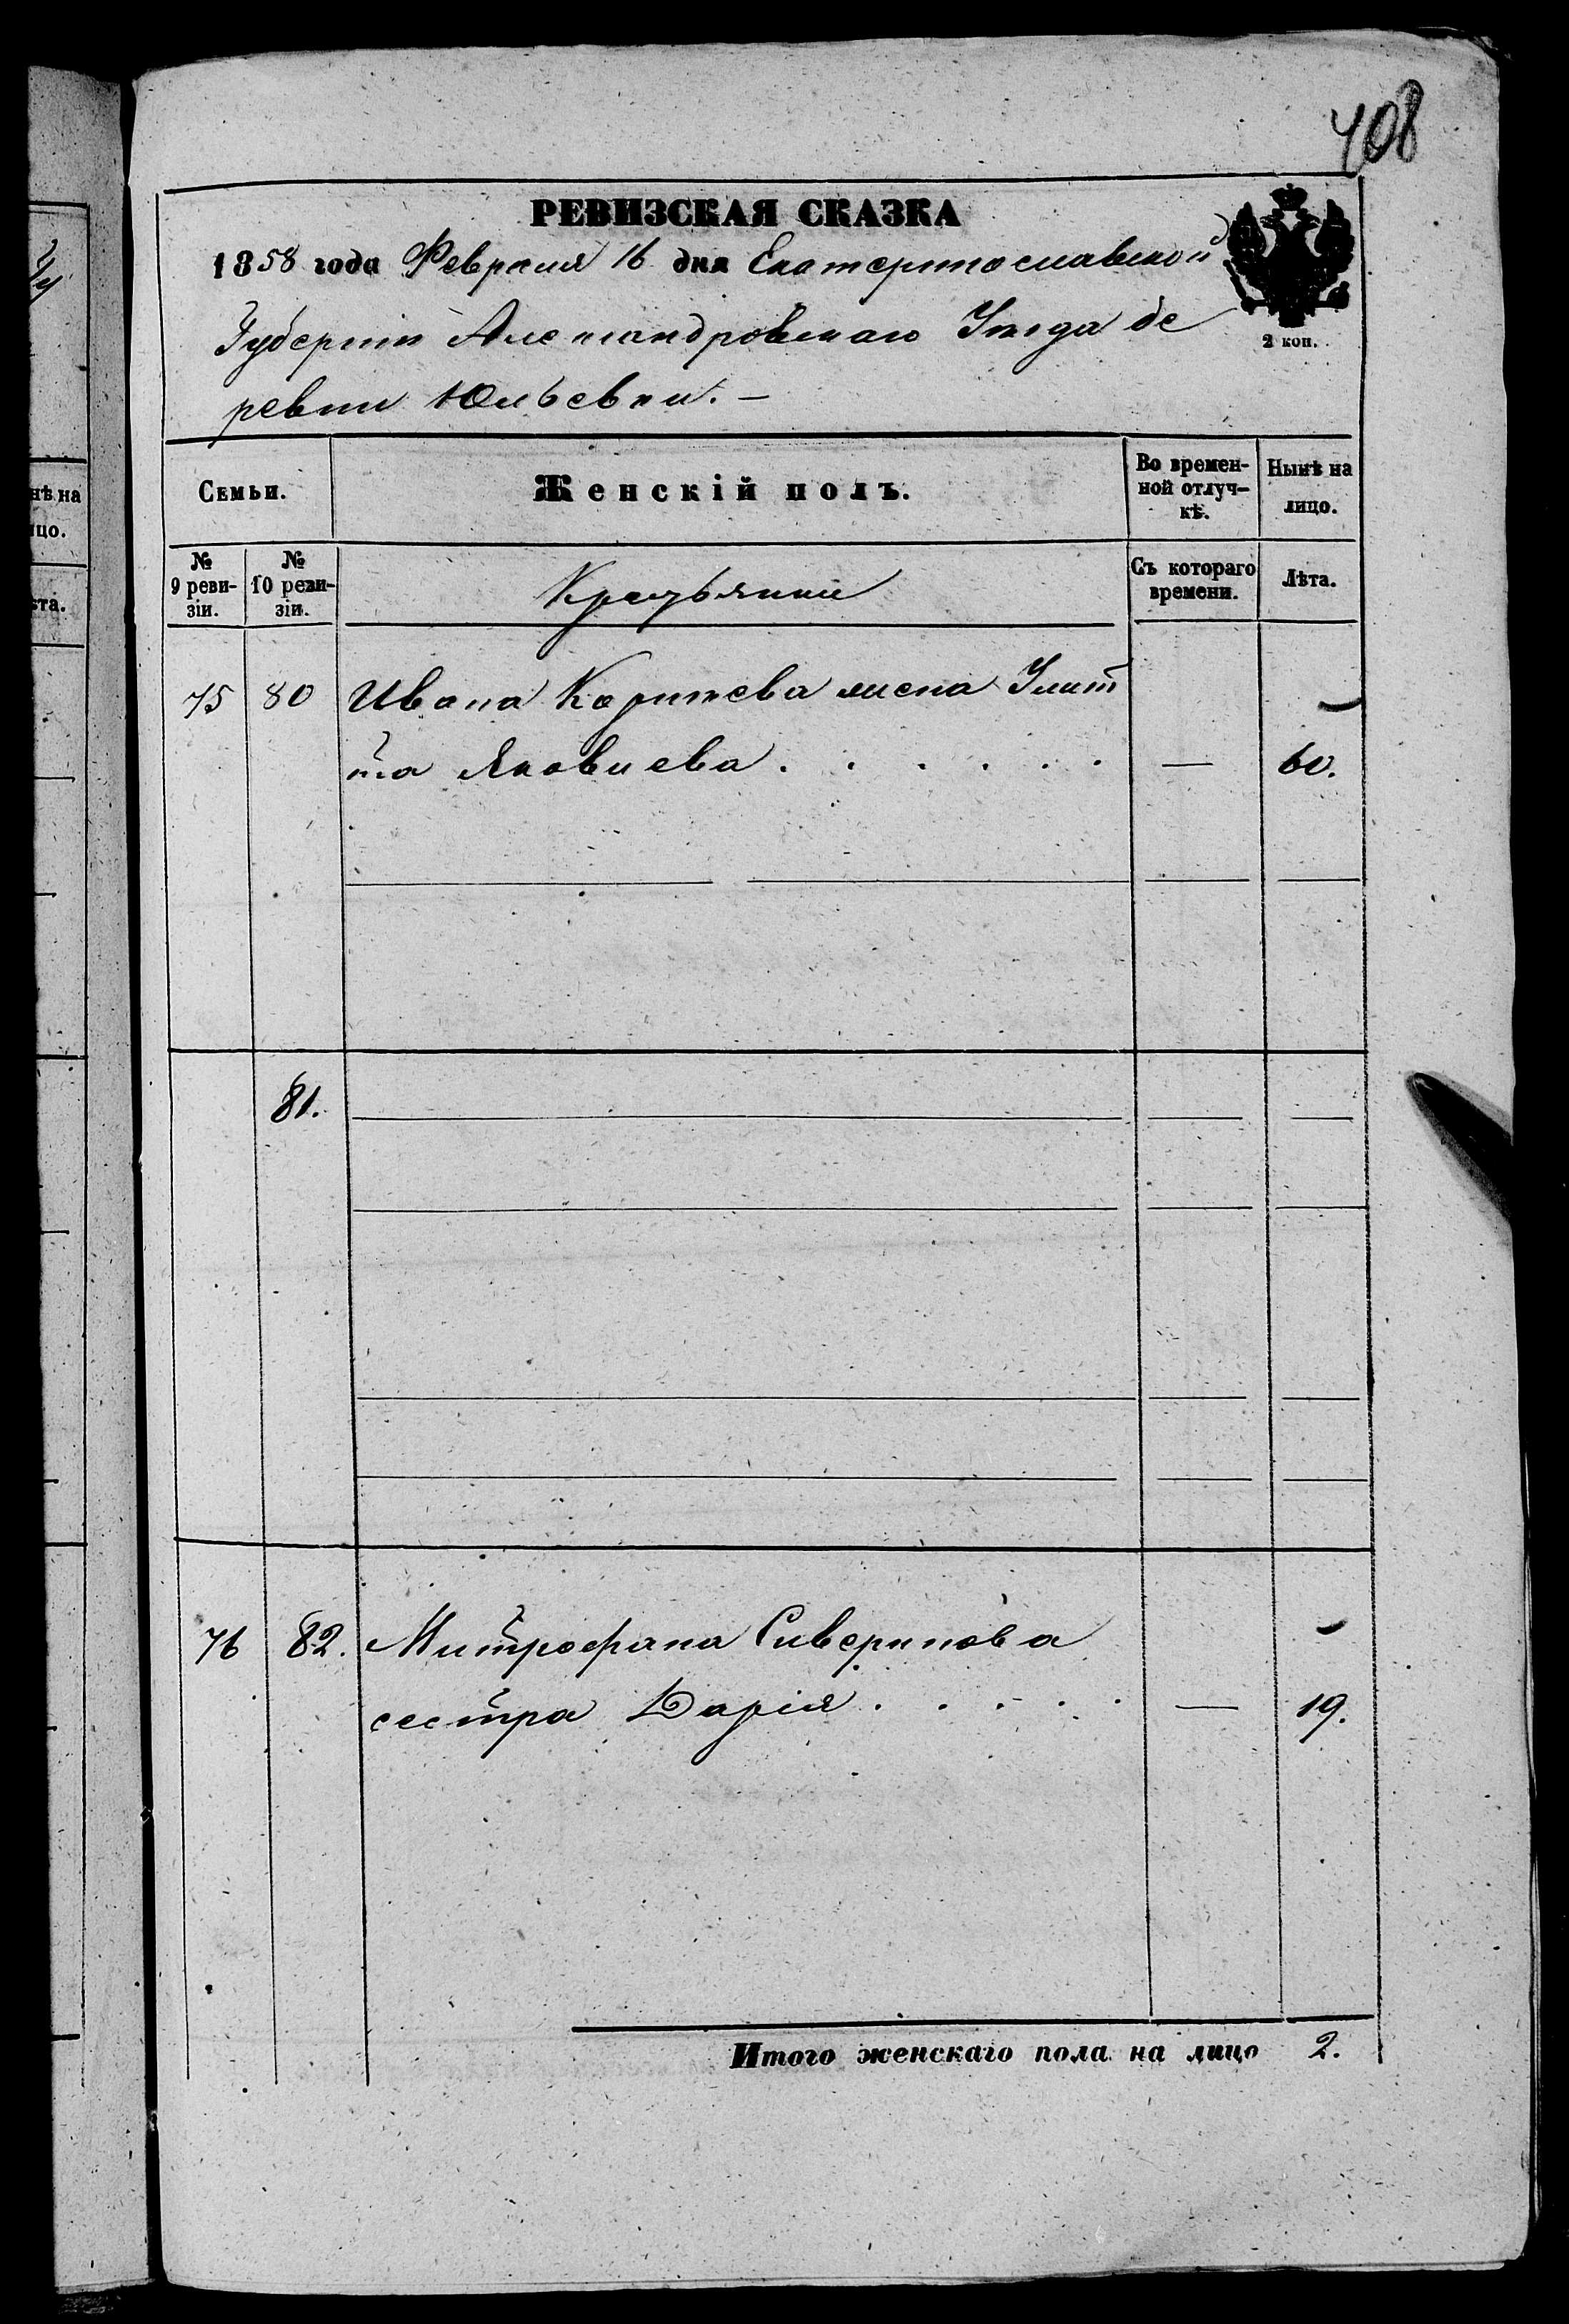 408
РЕВИЗСКАЯ СКАЗКА
1858 года Февраля 16 дня Екатеринославской
Губерніи Александровскаго Уѣзда де
ревни Юльевки. —
2 коп.
Семьи.
Женскій полъ.
Во времен-
ной отлуч-
кѣ.
Нынѣ на
лицо.
№
9 реви-
зіи.
№
10 реви-
зіи.
Съ котораго
времени.
Лѣта.
75 80 Ивана жена Улит
та Яковлева . . . . . . — 60.
81.
76 82. Митрофана Сиверинова
сестра Дарія . . . . . — 19.
Итого женскаго пола на лицо 2.
нѣ на
ицо.
ѣта.